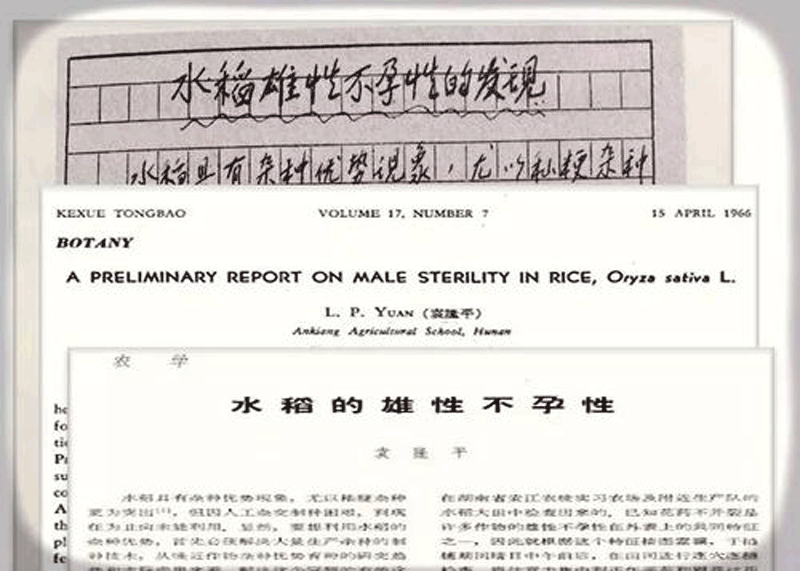 水稻雄性不孕性的发现
水稻具有杂种优势现象，尤以籼粳杂种
KEXUE TONGBAO VOLUME 17, NUMBER 7 15 APRIL 1966
BOTANY
A PRELIMINARY REPORT ON MALE STERILITY IN RICE, Oryza sativa L.
L. P. YUAN (袁隆平)
Ankiang Agricultural School, Hunan
农 学
水稻的雄性不孕性
袁隆平
水稻具有杂种优势现象，尤以籼粳杂种
更为突出[1]，但因人工杂交制种困难，到现
在为止尚未能利用。显然，要想利用水稻的
杂种优势，首先必须解决大量生产杂种的制
种技术，从
在湖南省安江农校实习农场及附近生产队的
水稻大田中检查出来的。已知花药不开裂是
许多作物的雄性不孕性在外表上的共同特征
之一，因此就根据这个特征